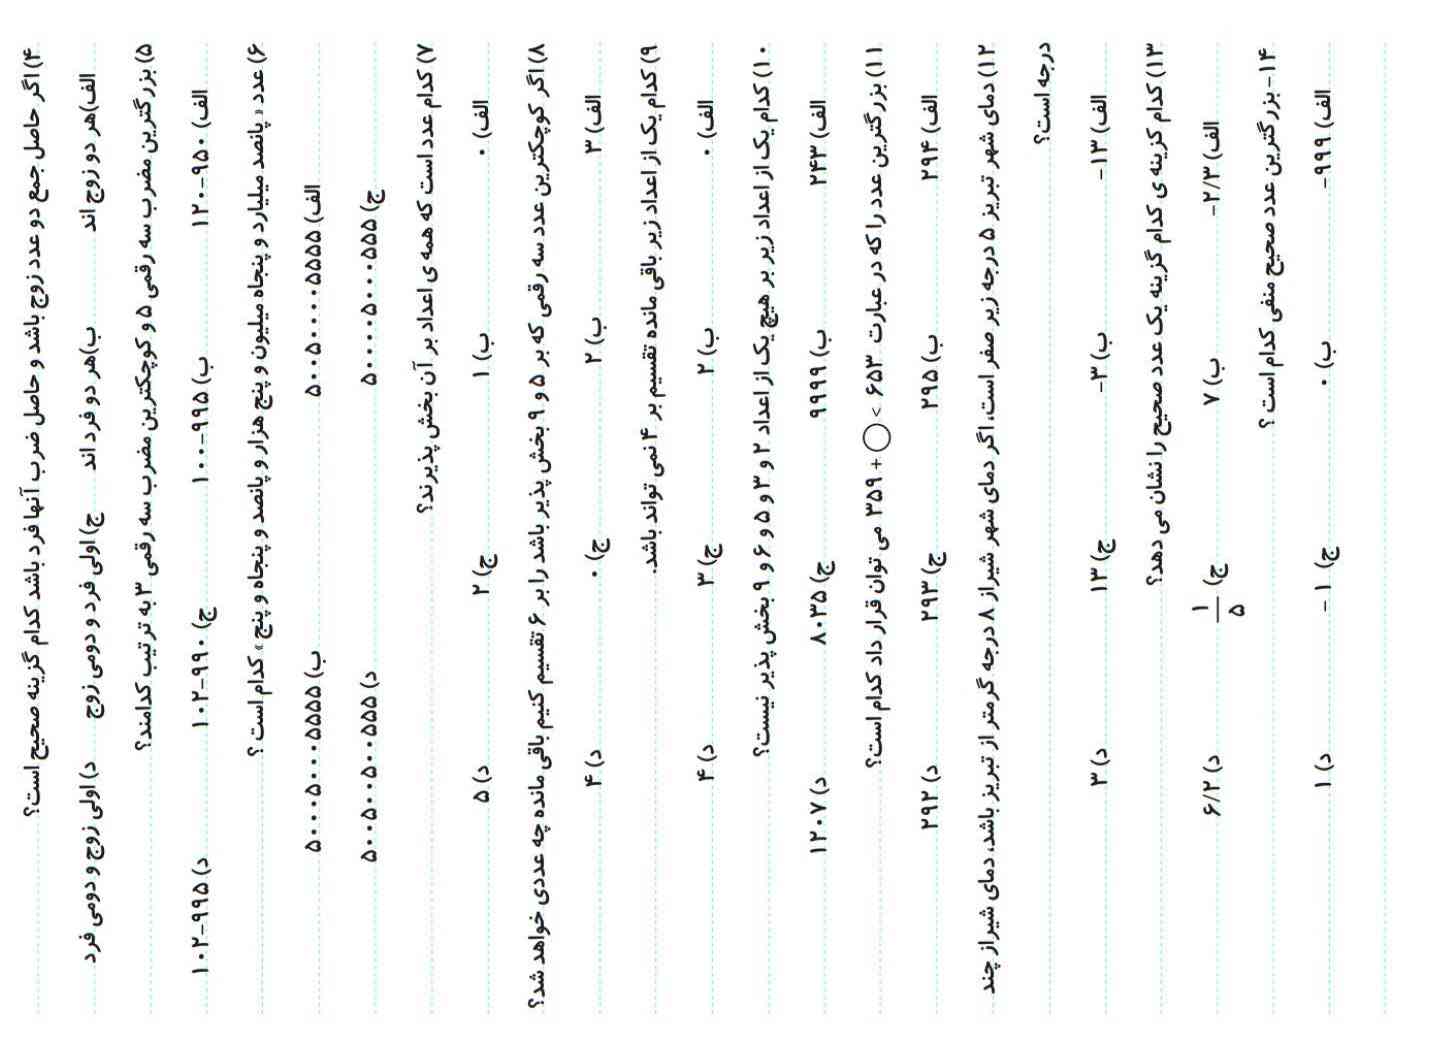 ۴) اگر حاصل جمع دو عدد زوج باشد و حاصل ضرب آنها فرد باشد کدام گزینه صحیح است؟
الف)هر دو زوج اند ب)هر دو فرد اند ج) اولی فرد و دومی زوج د) اولی زوج و دومی فرد
۵) بزرگترین مضرب سه رقمی ۵ و کوچکترین مضرب سه رقمی ۳ به ترتیب کدامند؟
الف) ۹۵۰-۱۲۰ ب) ۹۹۵-۱۰۰ ج) ۹۹۰-۱۰۲ د) ۹۹۵-۱۰۲
۶) عدد « پانصد میلیارد و پنجاه میلیون و پنج هزار و پانصد و پنجاه و پنج » کدام است ؟
الف) ۵۰۰۵۰۰۰۰۵۵۵۵ ب) ۵۰۰۰۵۰۰۰۵۵۵۵
ج) ۵۰۰۰۰۵۰۰۰۵۵۵ د) ۵۰۰۵۰۰۵۰۰۵۵۵
۷) کدام عدد است که همه ی اعداد بر آن بخش پذیرند؟
الف) ۰ ب) ۱ ج) ۲ د) ۵
۸) اگر کوچکترین عدد سه رقمی که بر ۵ و ۹ بخش پذیر باشد را بر ۶ تقسیم کنیم باقی مانده چه عددی خواهد شد؟
الف) ۳ ب) ۲ ج) ۰ د) ۴
۹) کدام یک از اعداد زیر باقی مانده تقسیم بر ۴ نمی تواند باشد.
الف) ۰ ب) ۲ ج) ۳ د) ۴
۱۰) کدام یک از اعداد زیر بر هیچ یک از اعداد ۲ و ۳ و ۵ و ۶ و ۹ بخش پذیر نیست؟
الف) ۲۴۳ ب) ۹۹۹۹ ج) ۸۰۳۵ د) ۱۲۰۷
۱۱) بزرگترین عدد را که در عبارت ۶۵۳ > ◯ + ۳۵۹ می توان قرار داد کدام است؟
الف) ۲۹۴ ب) ۲۹۵ ج) ۲۹۳ د) ۲۹۲
۱۲) دمای شهر تبریز ۵ درجه زیر صفر است، اگر دمای شهر شیراز ۸ درجه گرمتر از تبریز باشد، دمای شیراز چند
درجه است؟
الف) ۱۳- ب) ۳- ج) ۱۳ د) ۳
۱۳) کدام گزینه ی کدام گزینه یک عدد صحیح را نشان می دهد؟
الف) ۲/۳- ب) ۷ ج) ۱/۵ د) ۶/۲
۱۴- بزرگترین عدد صحیح منفی کدام است ؟
الف) ۹۹۹- ب) ۰ ج) ۱ - د) ۱